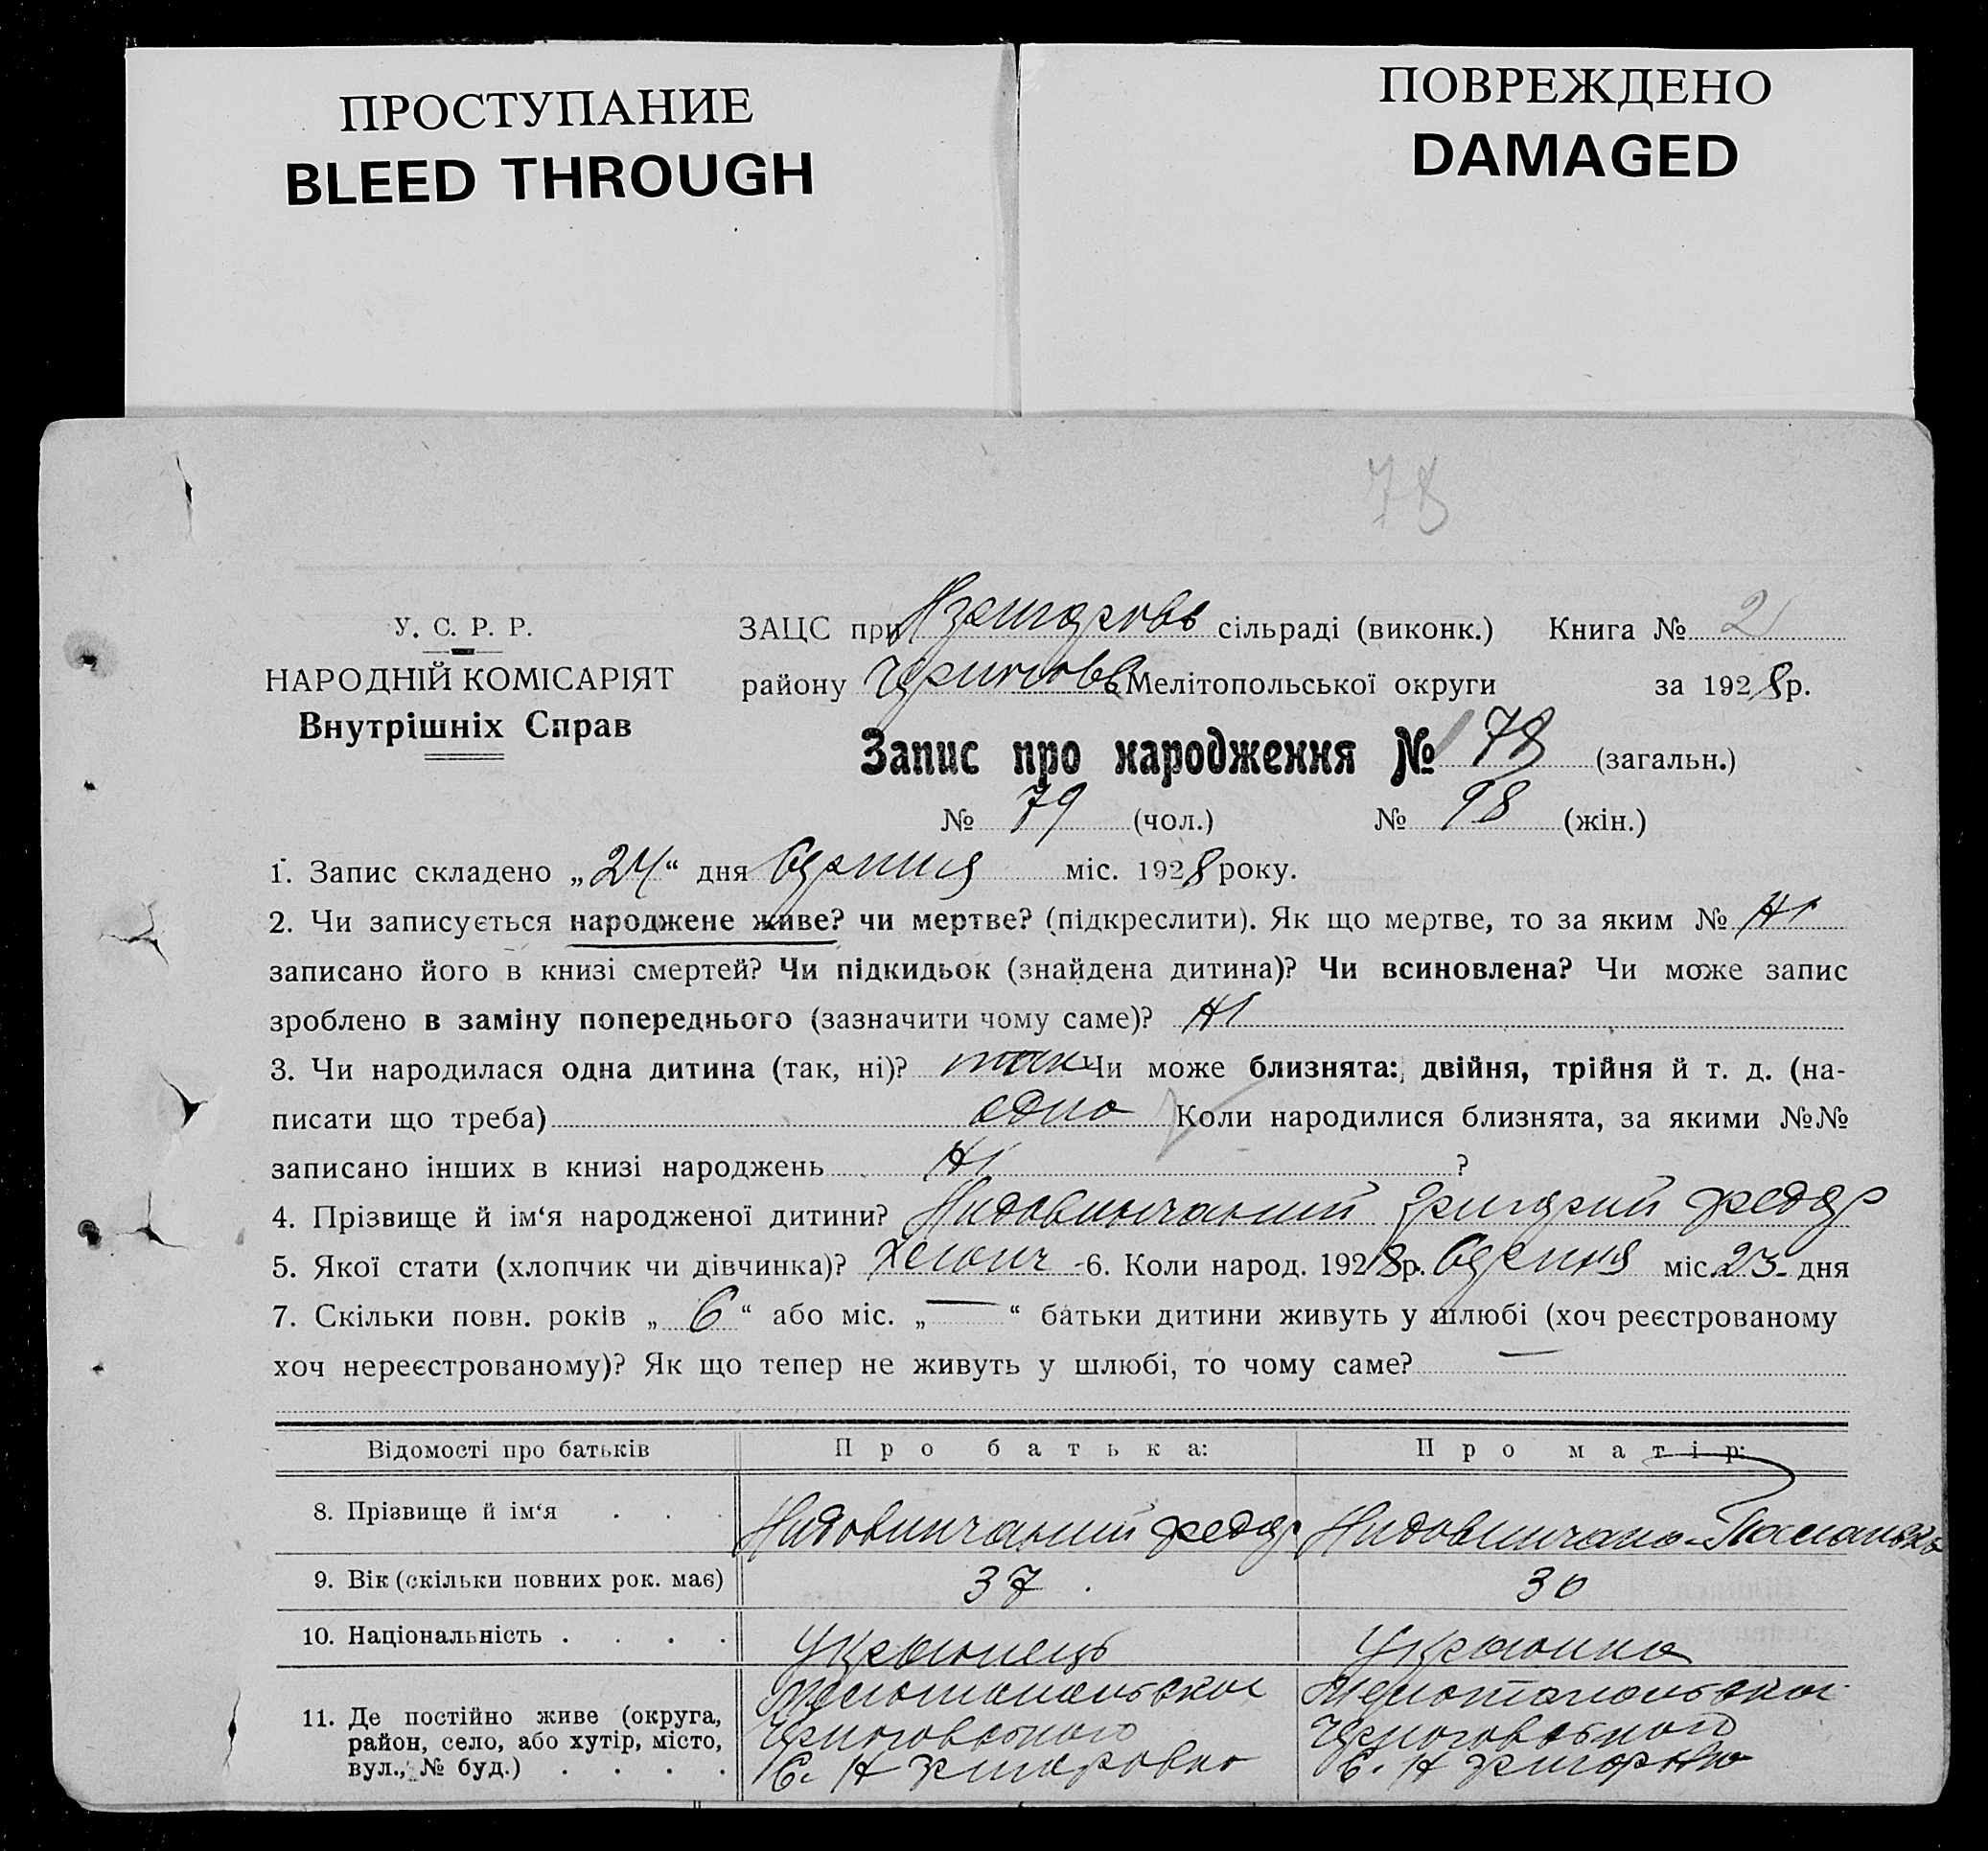 ПРОСТУПАНИЕ
BLEED THROUGH
ПОВРЕЖДЕНО
DAMAGED
78
У. С. Р. Р.
НАРОДНІЙ КОМІСАРІЯТ
Внутрішніх Справ
ЗАЦС при сільраді (виконк.) Книга № 2
району Мелітопольської округи за 1928 р.
Запис про народження № 78 (загальн.)
№ 79 (чол.) № 98 (жін.)
1. Запис складено „24“ дня міс. 1928 року.
2. Чи записується народжене живе? чи мертве? (підкреслити). Як що мертве, то за яким № Ні
записано його в книзі смертей? Чи підкидьок (знайдена дитина)? Чи всиновлена? Чи може запис
зроблено в заміну попереднього (зазначити чому саме)? Ні
3. Чи народилася одна дитина (так, ні)? так Чи може близнята: двійня, трійня й т. д. (на-
писати що треба) одно Коли народилися близнята, за якими №№
записано інших в книзі народжень Ні ?
4. Прізвище й ім‘я народженої дитини? Григорий Федор
5. Якої стати (хлопчик чи дівчинка)? 6. Коли народ. 1928 р. міс. 23 дня
7. Скільки повн. років „ 6 “ або міс. „ — “ батьки дитини живуть у шлюбі (хоч реєстрованому
хоч нереєстрованому)? Як що тепер не живуть у шлюбі, то чому саме? —
Відомості про батьків Про батька: Про матір:
8. Прізвище й ім‘я . . . Федор
9. Вік (скільки повних рок. має) 37 30
10. Національність . . . . Українець Українка
11. Де постійно живе (округа,
район, село, або хутір, місто,
вул., № буд.) . . . .